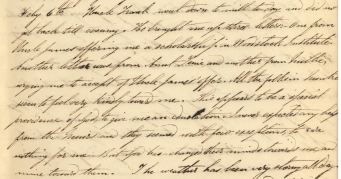 Feby 6th. Uncle Frank went down to mill to day and did not
get back till evening. He brought me up three letters. One from
Uncle James offering me a scholarship in Woodstock Institute
Another letter was from Aunt Jane and another from Mother
urging me to accept of Uncle James offer. All the folks in
seem to feel very kindly toward me. This appears to be a special
providence of God to give me an education. I never expected any help
from the and they seemed with few exceptions to care
nothing for me. But God has changed their minds toward me and
mine toward them. The weather has been very stormy all day